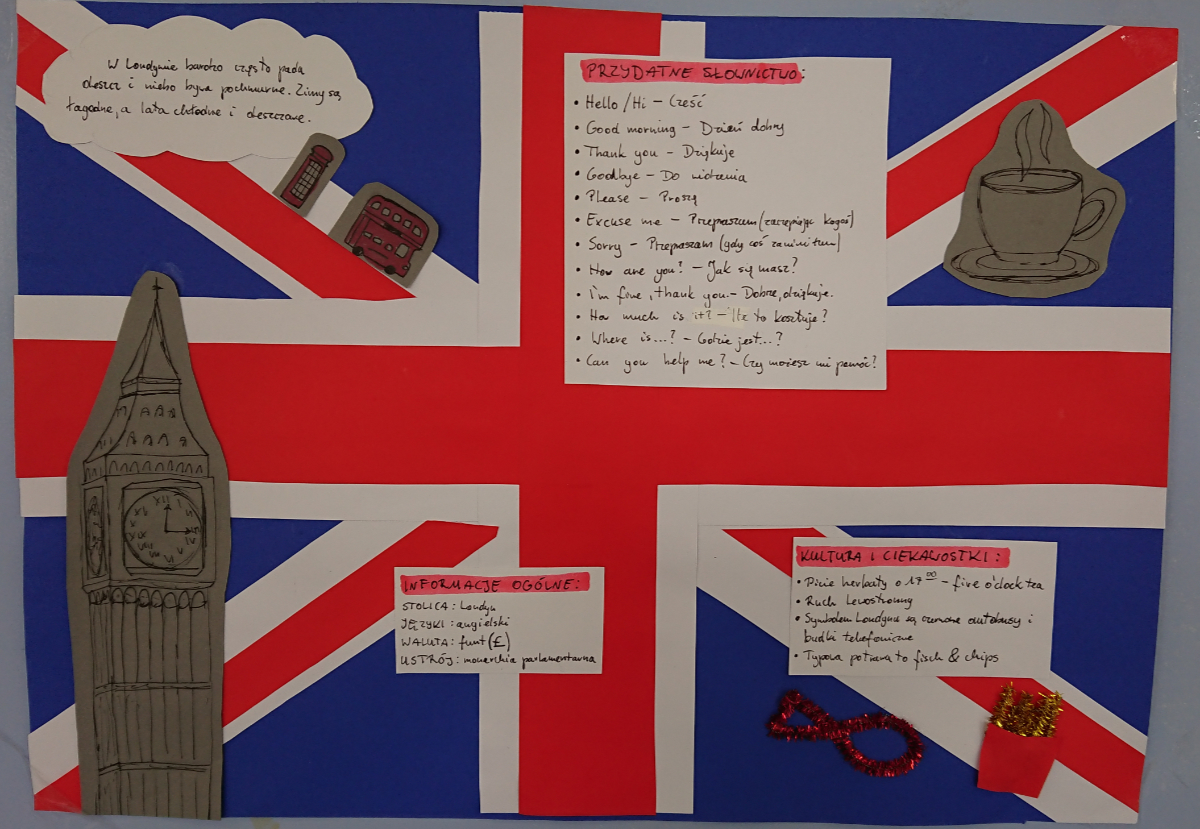 W Londynie bardzo często pada
deszcz i niebo bywa pochmurne. Zimy są
łagodne, a lata chłodne i deszczowe.
PRZYDATNE SŁOWNICTWO:
• Hello / Hi – Cześć
• Good morning – Dzień dobry
• Thank you – Dziękuje
• Goodbye – Do widzenia
• Please – Proszę
• Excuse me – Przepraszam (zaczepiając kogoś)
• Sorry – Przepraszam (gdy coś zawinitum)
• How are you? – Jak się masz?
• I'm fine, thank you. – Dobrze, dziękuje.
• How much is it? – Ile to kosztuje?
• Where is...? – Gdzie jest...?
• Can you help me? – Czy możesz mi pomóc?
INFORMACJE OGÓLNE:
STOLICA: Londyn
JĘZYKI: angielski
WALUTA: funt (£)
USTRÓJ: monarchia parlamentarna
KULTURA I CIEKAWOSTKI:
• Picie herbaty o 17⁰⁰ – five o'clock tea
• Ruch lewostronny
• Symbolem Londynu są czerwone autobusy i
budki telefoniczne
• Typowa potrawa to fisch & chips